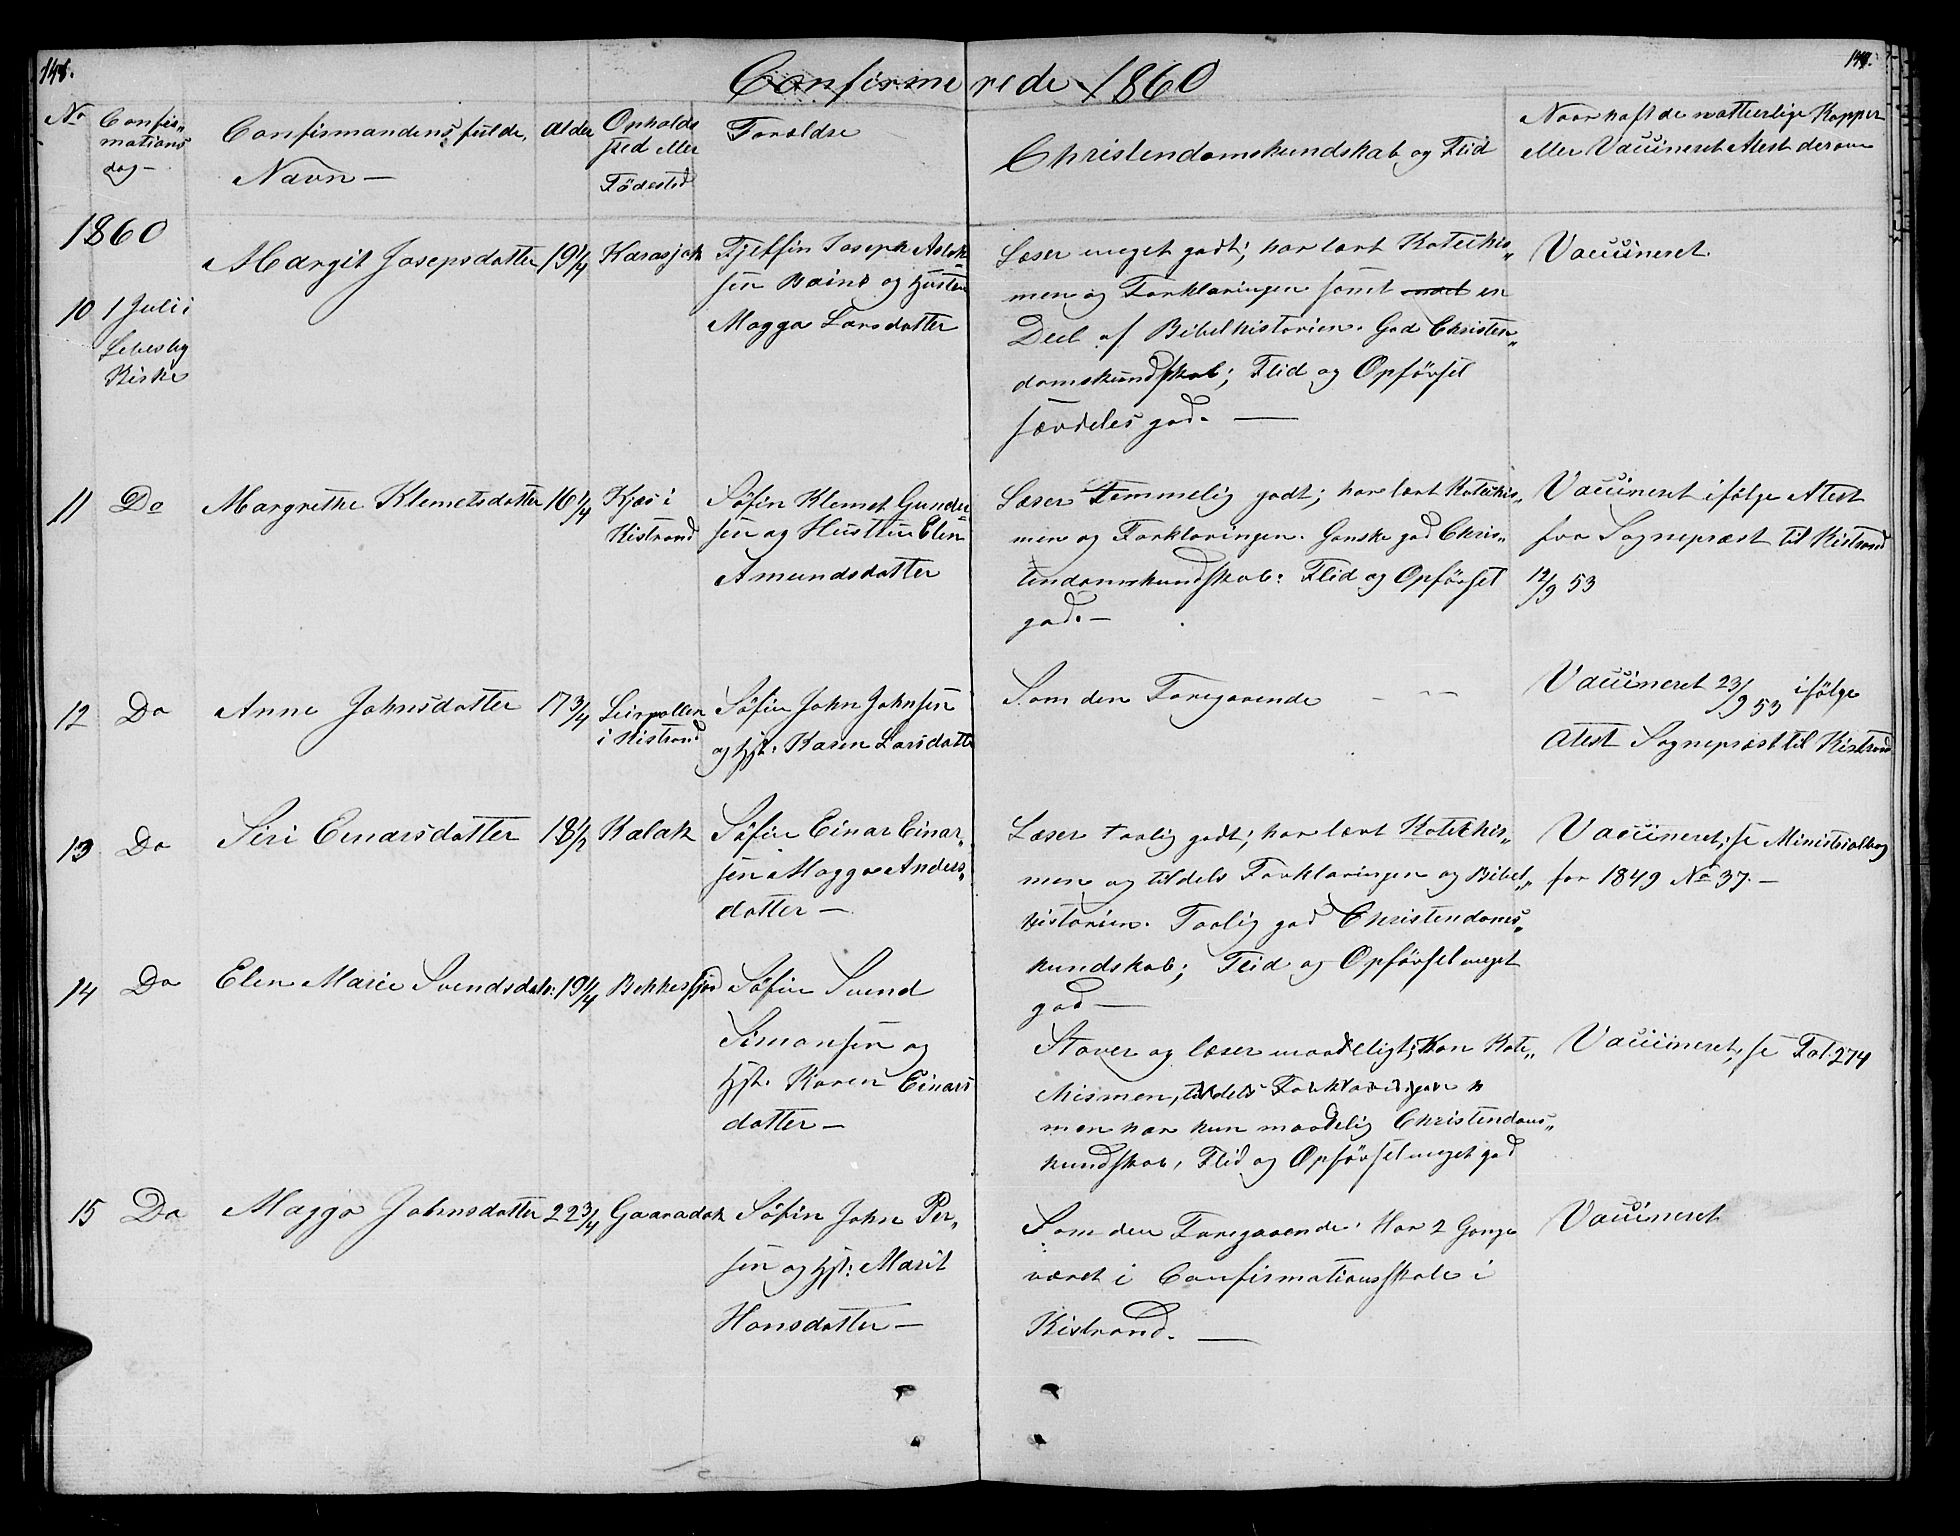 148.
Confirmerede 1860
No
Confir„
mations
dag –
Confirmandens fulde
Navn –
Alder
Opholds
sted eller
Födested
Forældre
Christendomskundskab og Flid
Naar haft de naturlige Kopper
eller Vaccineret Atest derom
1860
10
1 Juli i
Lebesby
Kirke
Margit Josepsdatter
19 1/4
Karasjok
Fjelfin Joseph Aslak„
sen Baino og Hustru
Magga Larsdatter
Læser meget godt; har lært Katechis„
men og Forklaringen samt en
Deel af Bibelhistorien. God Christen„
domskundskab; Flid og Opførsel
særdeles god. —
Vaccineret
11
Do
Margrethe Klemetsdatter
16 1/4
Kjæs i
Kistrand
Søfin Klemet Gunder„
sen og Hustru Elen
Amundsdatter
Læser temmelig godt; har lært Katechis„
men og Forklaringen. Ganske god Chris„
tendomskundskab: Flid og Opførsel
god. –
Vaccineret ifølge Atest
fra Sognepræst til Kistrand
12/9 53
12
Do
Anne Johnsdatter
17 3/4
Leirpollen
i Kistrand
Søfin John Johnsen
og Hst. Karen Larsdatter
Som den Foregaaende
Vaccineret 23/9 53 ifølge
Atest Sognepræst til Kistrand
13
Do
Siri Einarsdatter
18 1/2
Kalak
Søfin Einar Einar„
sen Magga Anders„
datter –
Læser taalig godt; har lært Katechis„
men og tildels Forklaringen og Bibel„
historien. Taalig god Christendoms„
kundskab; Flid og Opførsel meget
god —
Vaccineret; se Ministerialbog
for 1849 No 37. –
14
Do
Elen Marie Svendsdatr:
19 1/4
Bekkerfjord
Søfin Svend
Simonsen og
Hst. Karen Einars
datter –
Staver og læser maadeligt; Kan Kate„
chismen, tildels Forklaringen
men har kun maadelig Christendoms„
kundskab, Flid og Opførsel meget god
Vaccineret, se Fol. 274
15
Do
Magga Johnsdatter
22 3/4
Gaaradak
Søfin John Per„
sen og Hst: Marit
Hansdatter –
Som den Foregaaende. Har 2 Gange
været i Confirmationsskole i
Kistrand. —
Vaccineret